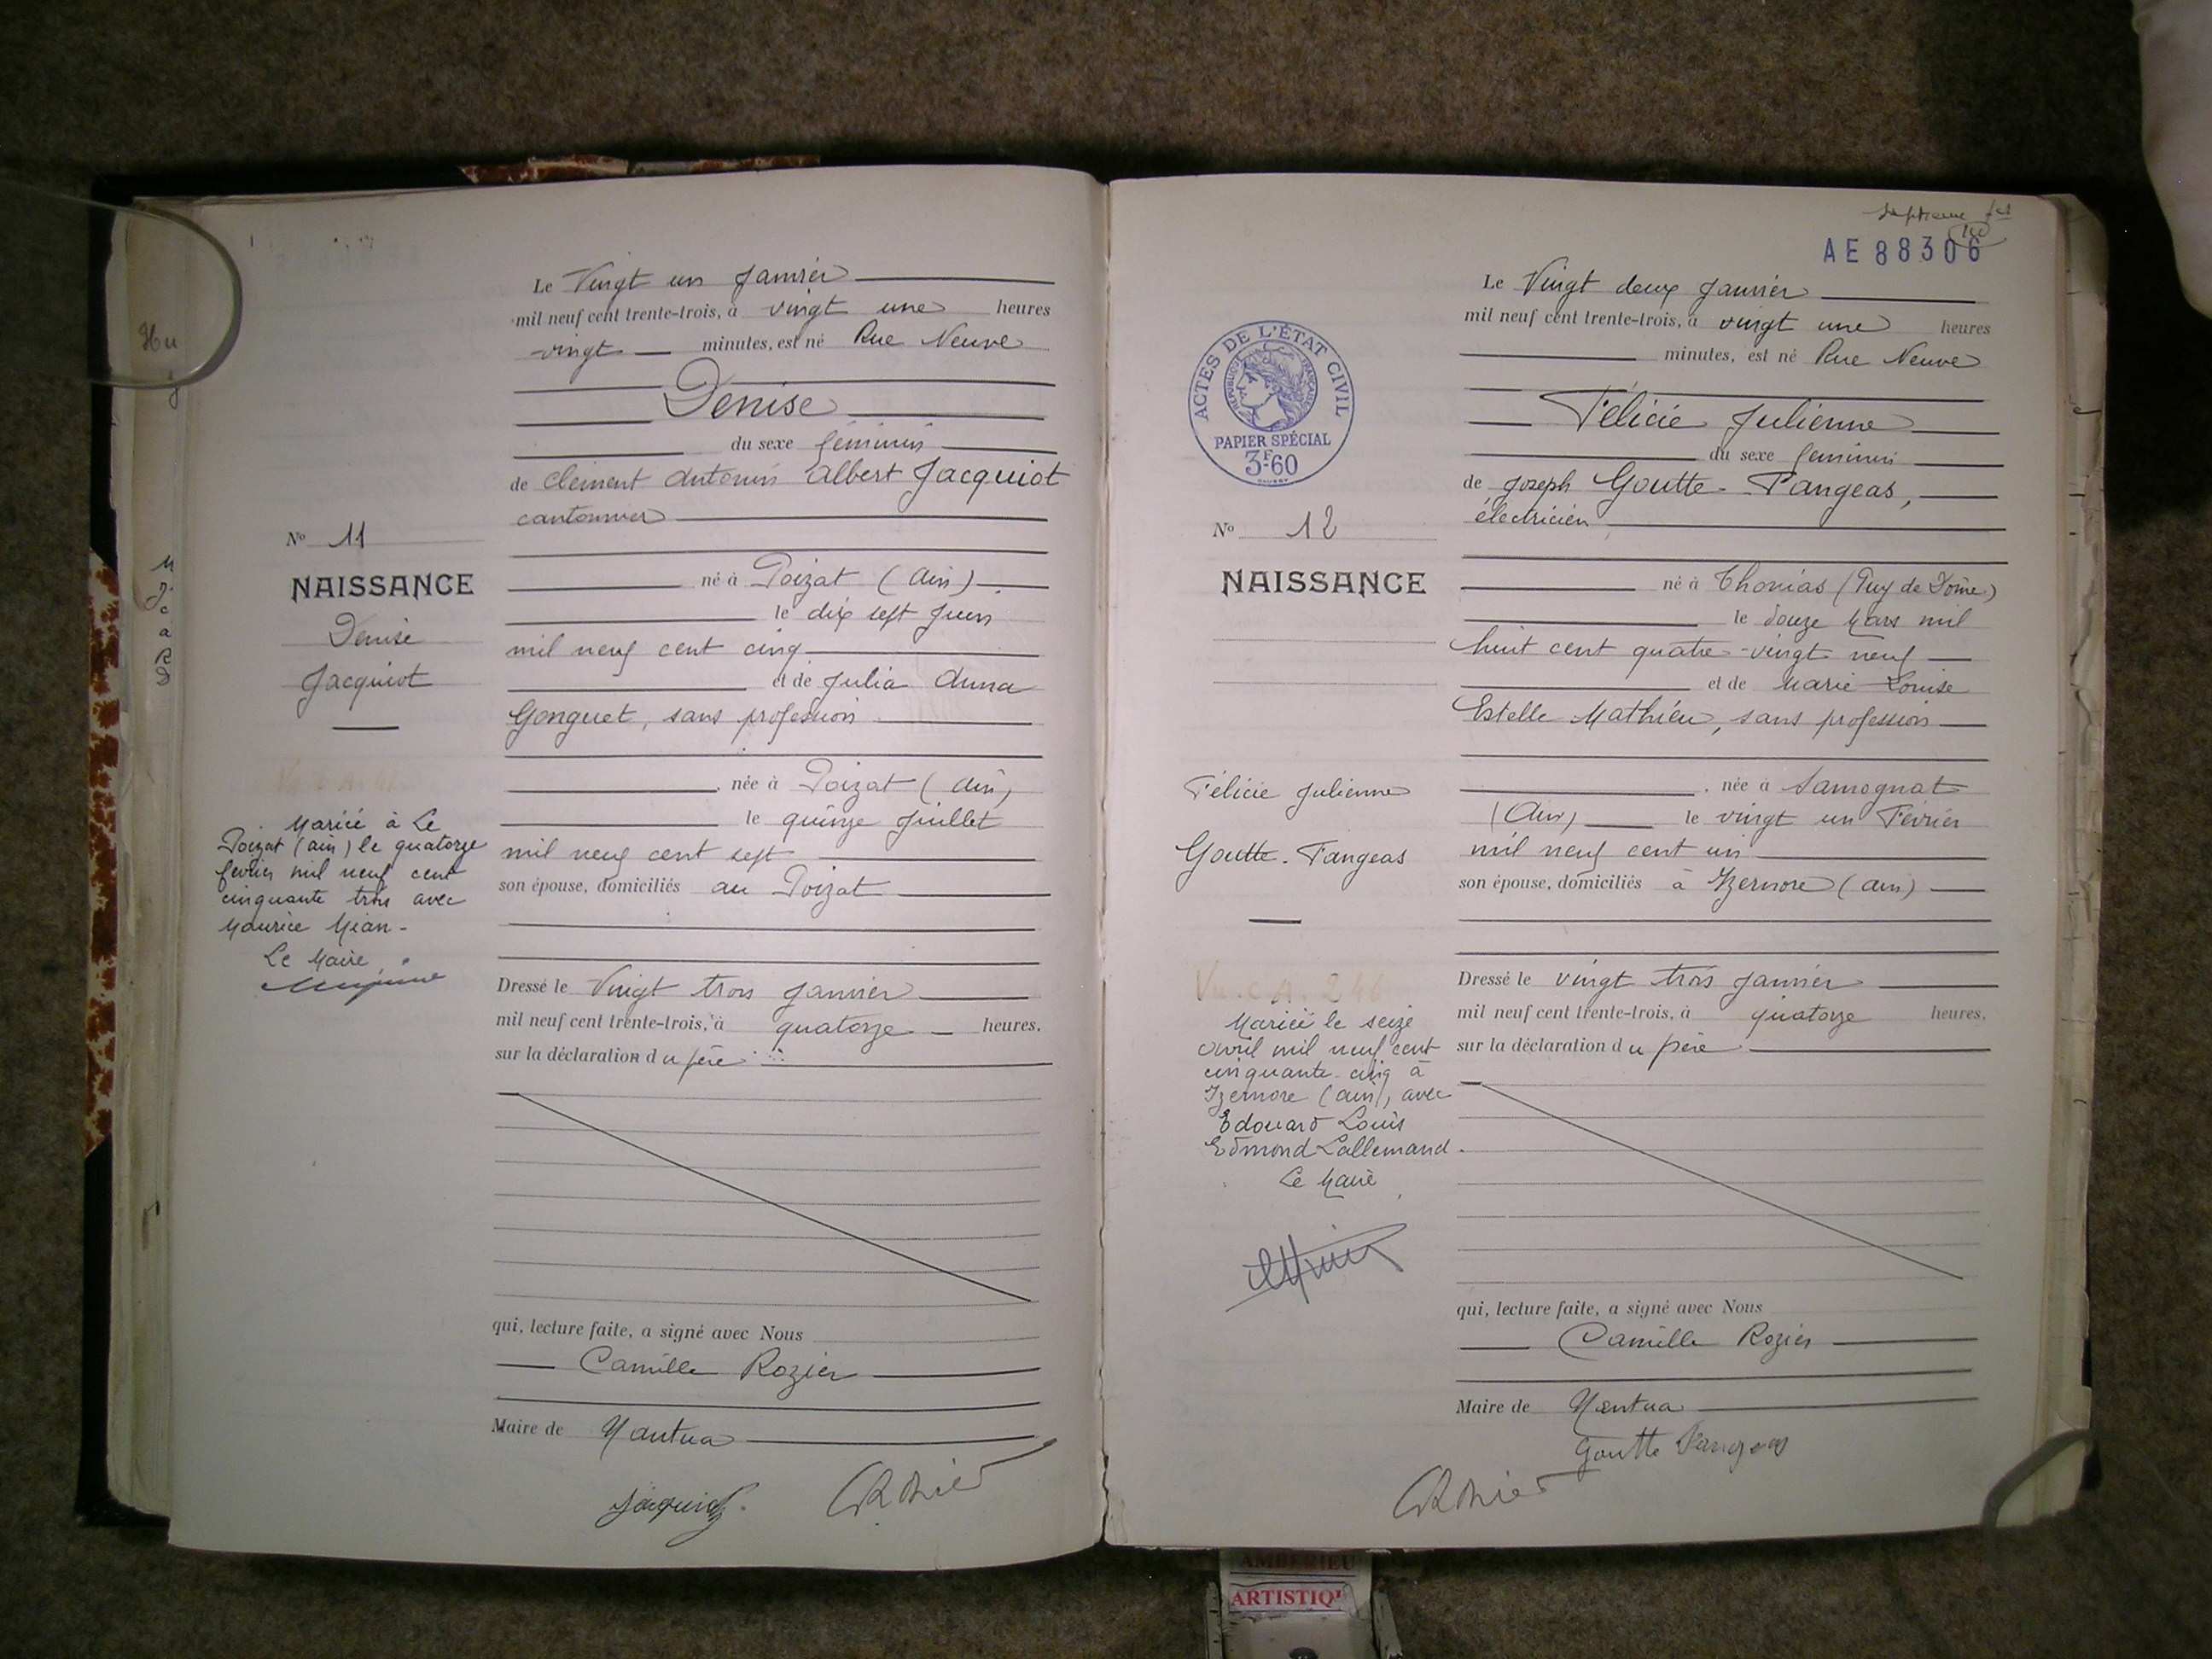 Le Vingt un Janvier
mil neuf cent trente-trois, à vingt une heures
vingt minutes, est né Rue Neuve
Denise
du sexe féminin
de Clément Antonin Albert Jacquiot
cantonnier
né à Poizat (Ain)
le dix sept Juin
mil neuf cent cinq
et de Julia Anna
Gonguet, sans profession
née à Poizat (Ain)
le quinze Juillet
mil neuf cent sept
son épouse, domiciliés au Poizat
Dressé le Vingt trois Janvier
mil neuf cent trente-trois, à quatorze heures.
sur la déclaration du père
qui, lecture faite, a signé avec Nous
Camille Rozier
Maire de Nantua
Jacquiot
CRozier
No 11
NAISSANCE
Denise
Jacquiot
Mariée à Le
Poizat (Ain) le quatorze
février mil neuf cent
cinquante trois avec
Maurice Mian-
Le Maire
AE 88306
ACTES DE L'ÉTAT CIVIL
RÉPUBLIQUE FRANÇAISE
PAPIER SPÉCIAL
3F60
No 12
NAISSANCE
Félicie Julienne
Goutte-Fangeas
Vu.c.A. 246
Mariée le seize
avril mil neuf cent
cinquante-cinq à
Izernore (Ain), avec
Edouard Louis
Edmond Lallemand.
Le Maire
Le Vingt deux Janvier
mil neuf cent trente-trois, à vingt une heures
minutes, est né Rue Neuve
Félicie Julienne
du sexe féminin
de Joseph Goutte-Fangeas,
électricien
né à Thonias (Puy de Dôme)
le douze Mars mil
huit cent quatre-vingt neuf
et de Marie Louise
Estelle Mathieu, sans profession
née à Samognat
(Ain) le vingt un Février
mil neuf cent un
son épouse, domiciliés à Izernore (Ain)
Dressé le vingt trois Janvier
mil neuf cent trente-trois, à quatorze heures.
sur la déclaration du père
qui, lecture faite, a signé avec Nous
Camille Rozier
Maire de Nantua
Goutte Fangeas
CRozier
AMBERIEU
ARTISTIQ